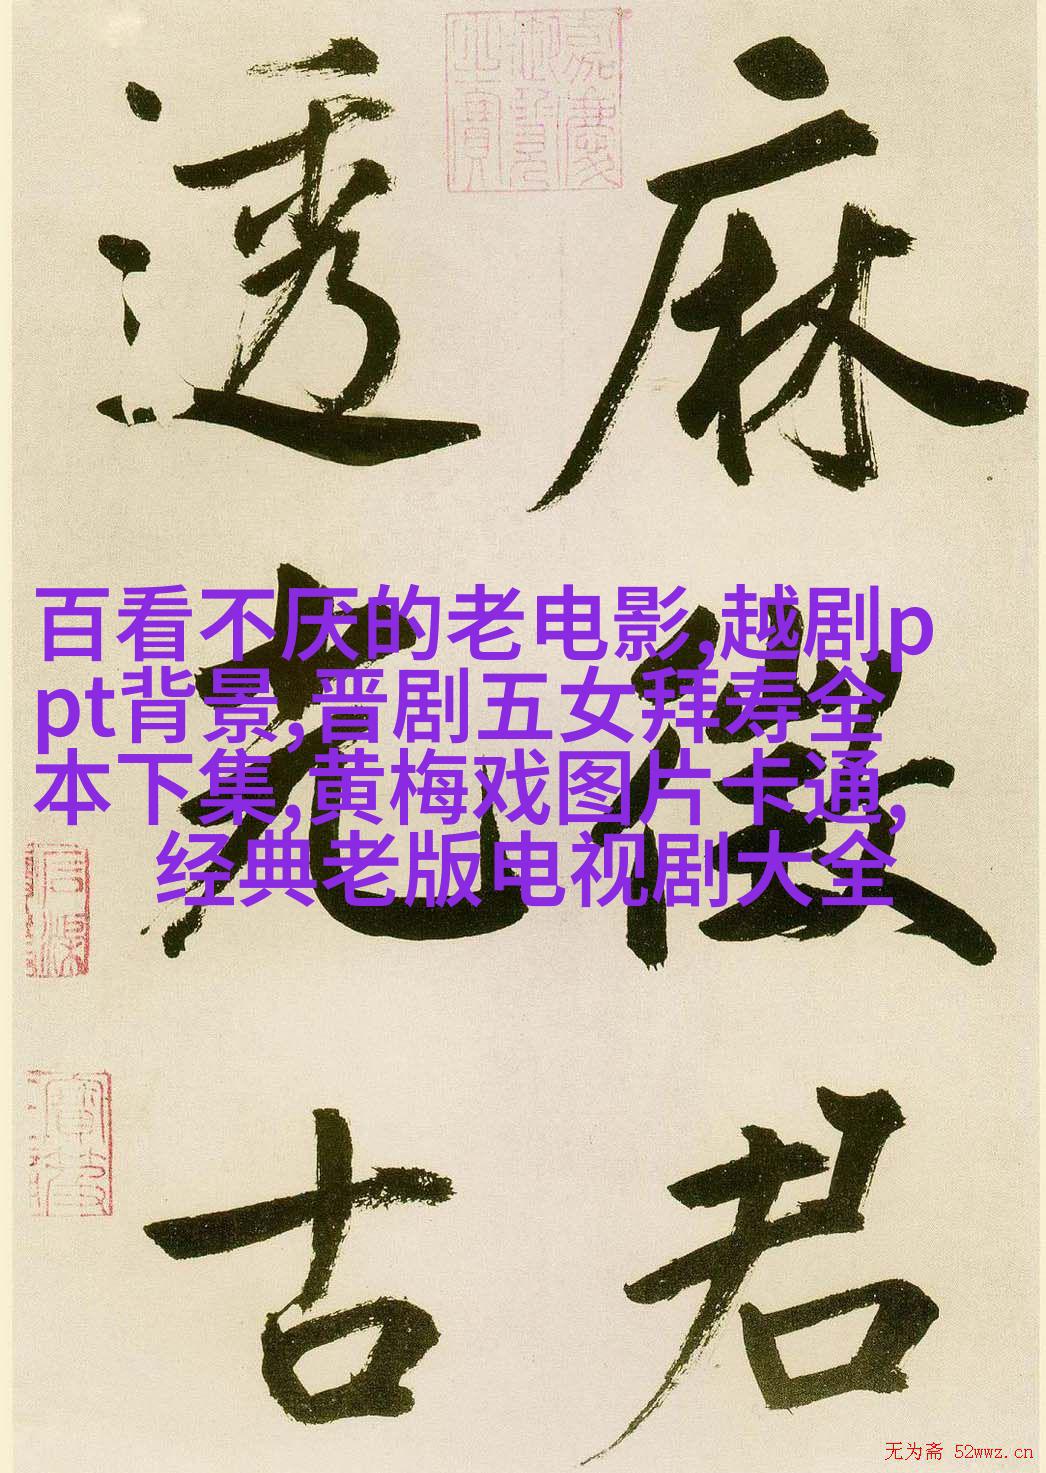 麻
徵
君
透
光
古
百看不厌的老电影,越剧p
pt背景,晋剧五女拜寿全
本下集,黄梅戏图片卡通,
经典老版电视剧大全
无为斋 52wwz.cn